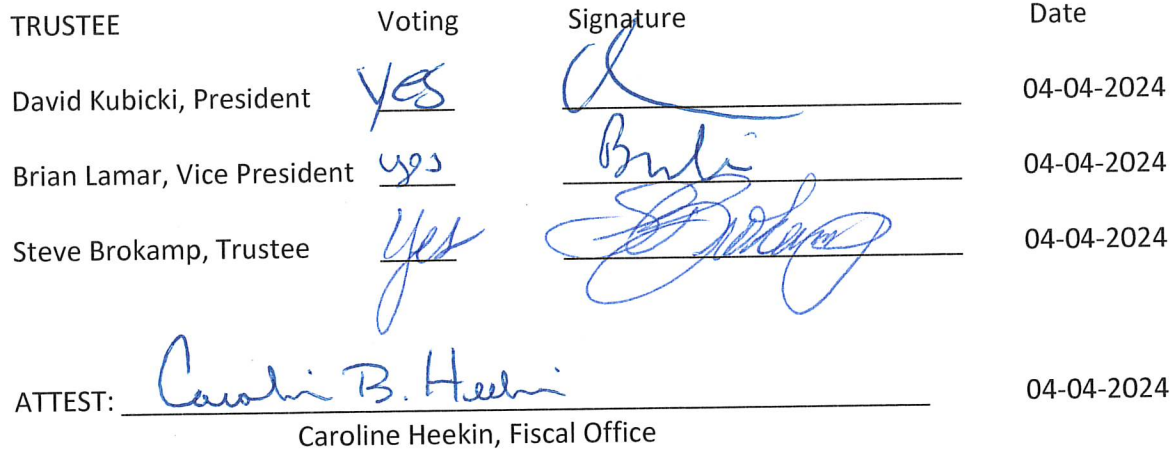 TRUSTEE Voting Signature Date
David Kubicki, President yes 04-04-2024
Brian Lamar, Vice President yes 04-04-2024
Steve Brokamp, Trustee Yes S Brokamp 04-04-2024
ATTEST: Caroline B. Heekin 04-04-2024
Caroline Heekin, Fiscal Office